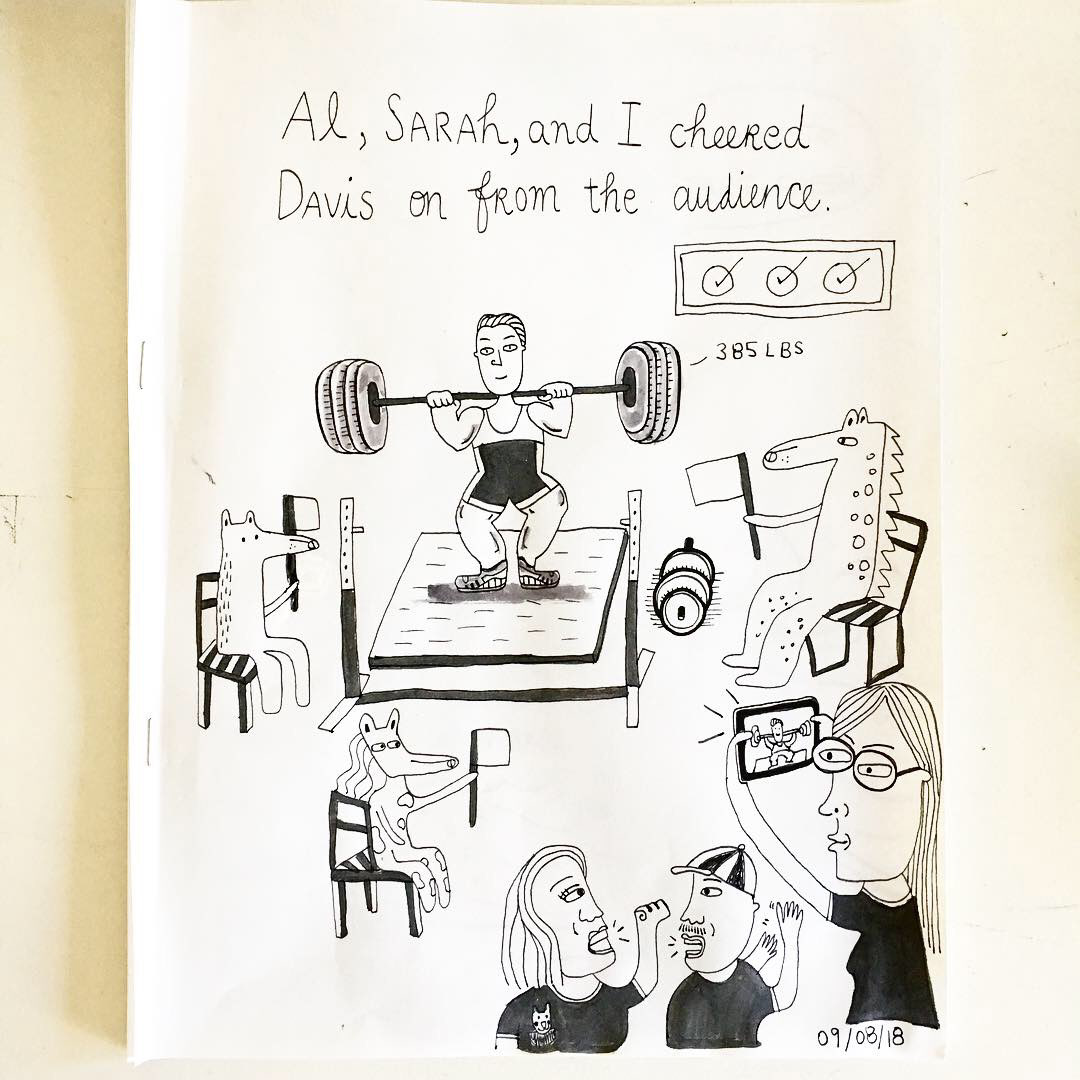 Al, SARAh, and I cheeRed
DAViS on fROM the audience.
385 LBS
09/08/18